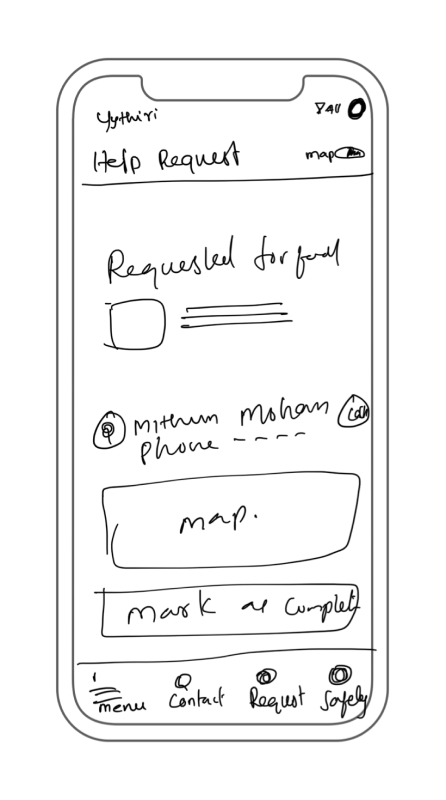 Vythiri
Help Request
map
Requested for food
Mithun Mohan
phone ----
map.
Mark as Complet
menu
Contact
Request
Safely